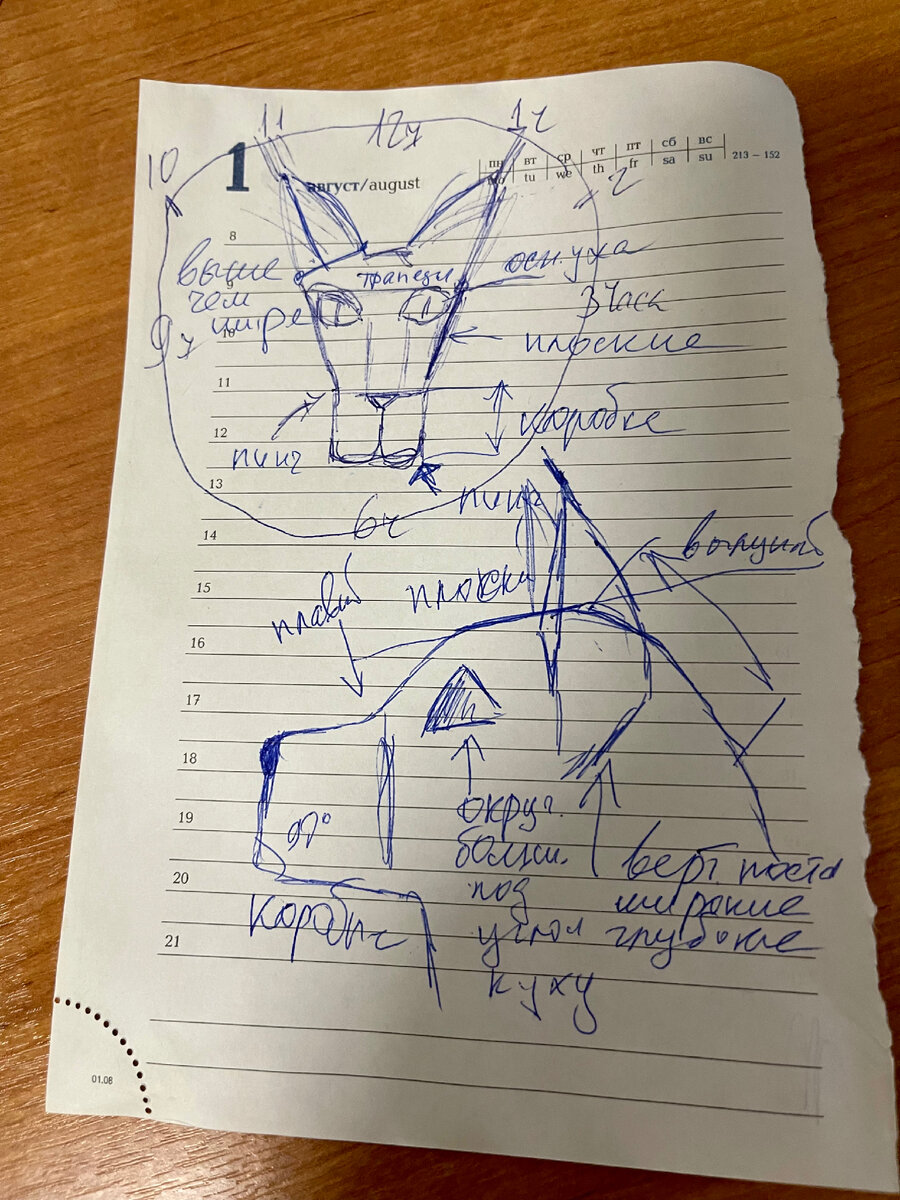 11
12ч
1ч
10
1
август/august
пн вт ср чт пт сб вс
mo tu we th fr sa su
213 – 152
2
8
выше
чем
шире
трапеци
осн. уха
9ч
10
3 часа
плоские
11
12
коробке
13
6ч
14
15
плоски
16
17
18
90°
19
округ.
20
под
куху
верт поста
широкие
глубокие
21
01.08